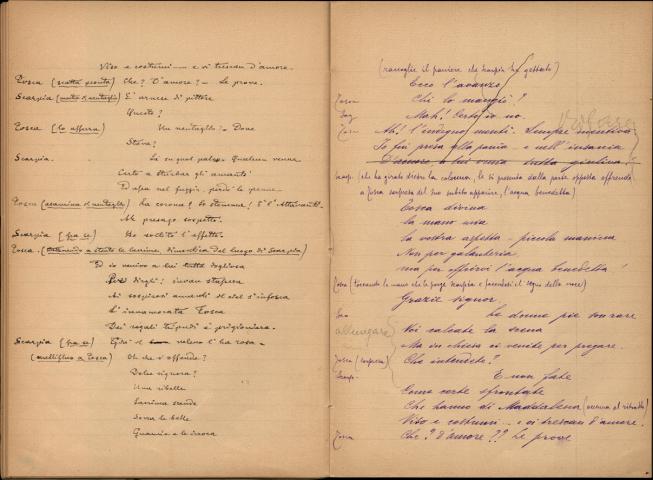 Viso e costumi — e vi trescan d'amore.
Tosca (scatta pronta) Che? D'amore? — Le prove.
Scarpia (mostra il ventaglio) E' arnese di pittore
Questo?
Tosca (lo afferra) Un ventaglio. — Dove
Stava?
Scarpia. Là su quel palco. Qualcun venne
Certo a sturbar gli amanti
Ed essa nel fuggir perdè le penne.
Tosca (esamina il ventaglio) La corona? Lo stemma! È l'Attavanti.
Ah presago sospetto.
Scarpia (fra sè) Ho sortito l'effetto.
Tosca. (trattenendo a stento le lacrime, dimentica del luogo e di Scarpia)
Ed io venivo a lui tutta dogliosa
Per dirgli: invan stasera
Ai sospirosi amanti il ciel s'infosca
L'innamorata Tosca
Dei regali tripudi è prigioniera.
Scarpia (fra sè) Già il veleno l'ha rosa —
(mellifluo a Tosca) Oh che v'offende?
Dolce signora?
Una ribelle
Lacrima scende
Sovra le belle
Guancie e le irrora
(raccoglie il paniere che Scarpia ha gettato)
Ecco l'avanzo,
Chi lo mangiò?
Mah! Certo io no.
Tosca Ah! l'indegno mentì. Sempre mentiva
Io fui presa alla pania — e nell'insania
D'amore a lui ero tutta giuliva!
Scarp. (che ha girato dietro la colonna, le si presenta dalla parte opposta offrendo
a Tosca sorpresa del suo subito apparire, l'acqua benedetta)
Tosca divina
la mano mia
la vostra aspetta — piccola manina
Non per galanteria
ma per offrirvi l'acqua benedetta!
Tosca (toccando la mano che le porge Scarpia e facendosi il segno della croce)
Grazie signor.
Le donne pie son rare
Voi calcate la scena
allungare
Ma in chiesa ci venite per pregare.
Tosca (sorpresa) Che intendete?
Scarp. E non fate
Come certe sfrontate
Che hanno di Maddalena (accenna al ritratto)
Viso e costumi... e vi trescan d'amore.
Tosca Che? d'amore?? Le prove